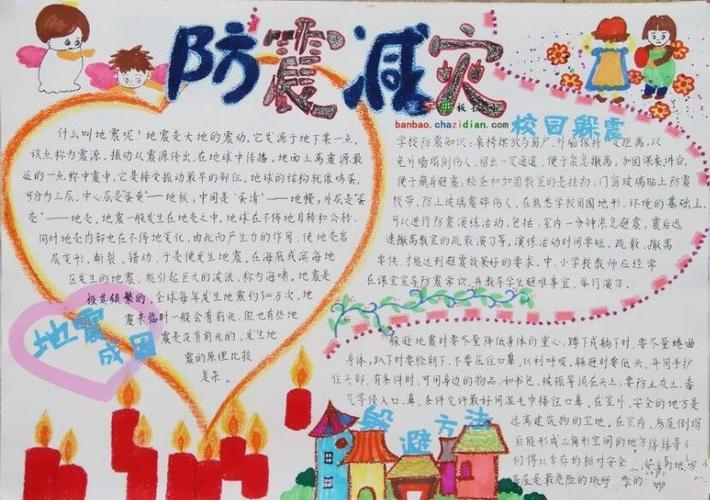 防震减灾
banbao.chazidian.com
什么叫地震呢?地震是大地的震动,它发源于地下某一点,
该点称为震源,振动从震源传出,在地球中传播,地面上离震源最
近的一点称中震中,它是接受振动最早的部位,地球的结构就像鸡蛋,
可分为三层,中心层是"蛋黄"——地核,中间是"蛋清"——地幔,外层是"蛋
壳"——地壳,地震一般发生在地壳之中,地球在不停地自转和公转,
同时地壳内部也在不停地变化,由此而产生力的作用,使地壳岩
层变形、断裂、错动,于是便发生地震,在海底或滨海地
区发生的地震,能引起巨大的波浪,称为海啸,地震是
极其频繁的,全球每年发生地震约500万次,地
震来临时一般会有前兆,但也有些地
震是没有前兆的,发生地
震的原理比较
复杂。
地震
成因
校园躲震
学校防震知识:课桌摆放与窗户、外墙保持一定距离,以
免外墙塌倒伤人,留出一定通道,便于紧急撤离,加固课桌讲台,
便于藏身避震,检查和加固教室的悬挂物,门窗玻璃贴上防震
胶带,防上玻璃震碎伤人,在熟悉学校周围地形、环境的基础上,
可以进行防震演练活动,包括,室内一分钟紧急避震,震后迅
速撤离教室的疏散演习等,演练活动时间要短,疏散、撤离
要快,才能达到避震效果好的要求,中、小学校教师应经常
在课堂宣导防震常识,并教导学生避难事宜,举行演习。
躲避地震时要尽量降低身体的重心,蹲下或躺下时,要尽量蜷曲
身体,趴下时要脸朝下,不要压住口鼻,以利呼吸,躲避时要低头,并用手护
住头部,有条件时,可用身边的物品,如书包、被褥等顶在头上;要防止灰土、毒
气等侵入口、鼻,条件允许最好用湿毛巾捂住口鼻,在室外,安全的地方是
远离建筑物的空地,在室内,房屋倒塌
后能形成三角形空间的地方
们得以幸存的相对安全
屋是最危险的场所
躲避方法